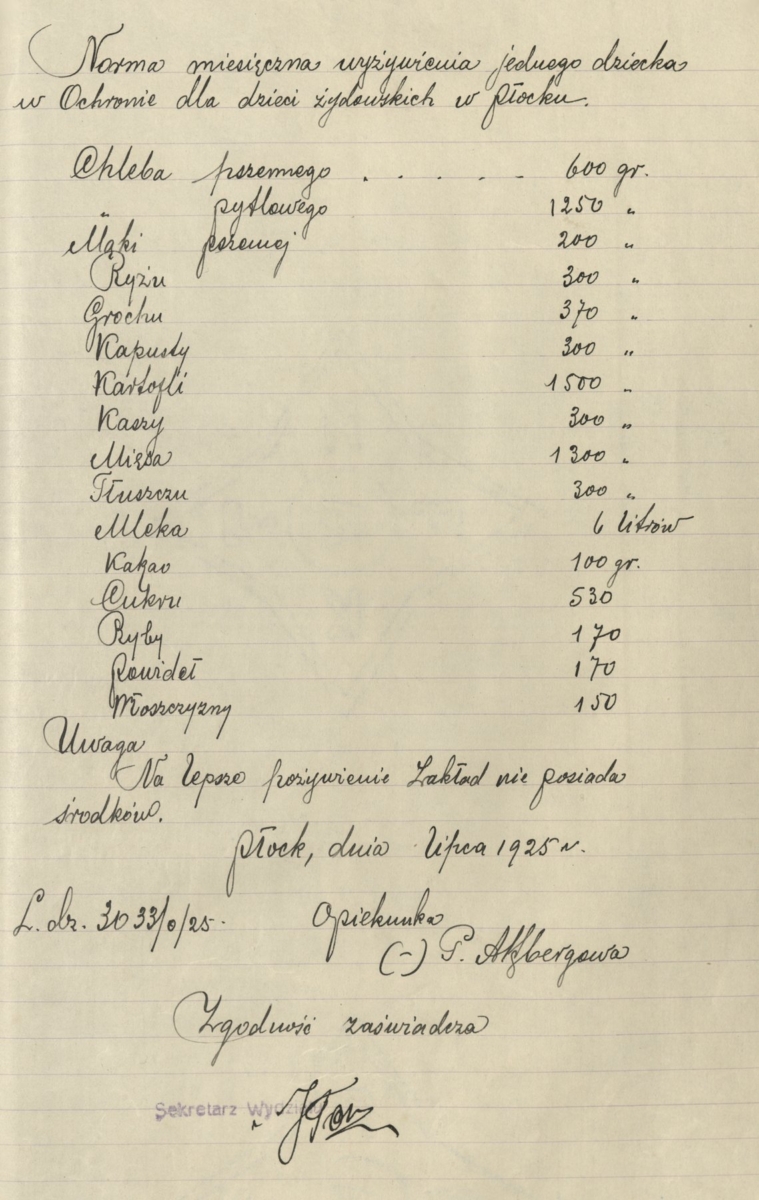 Norma miesięczna wyżywienia jednego dziecka
w Ochronie dla dzieci żydowskich w Płocku.
Chleba pszennego . . . . - 600 gr.
" pytlowego 1250 "
Mąki pszennej 200 "
Ryżu 300 "
Grochu 370 "
Kapusty 300 "
Kartofli 1500 "
Kaszy 300 "
Mięsa 1300 "
Tłuszczu 300 "
Mleka 6 litrów
Kakao 100 gr.
Cukru 530
Ryby 170
Powideł 170
Włoszczyzny 150
Uwaga
Na lepsze pożywienie Zakład nie posiada
środków.
Płock, dnia lipca 1925 r.
L. dz. 3033/0/25.
Opiekunka
(-) P.
Zgodność zaświadcza
Sekretarz